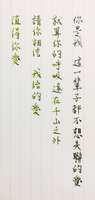 你是我 這一輩子都不想失聯的愛
就算你的呼吸遠在千山之外
請你相信 我給的愛
值得你愛